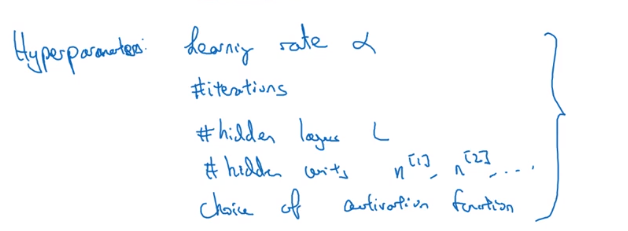 Hyperparameters: Learning rate α
#iterations
#hidden layers L
#hidden units n^[1], n^[2], ....
choice of activation function